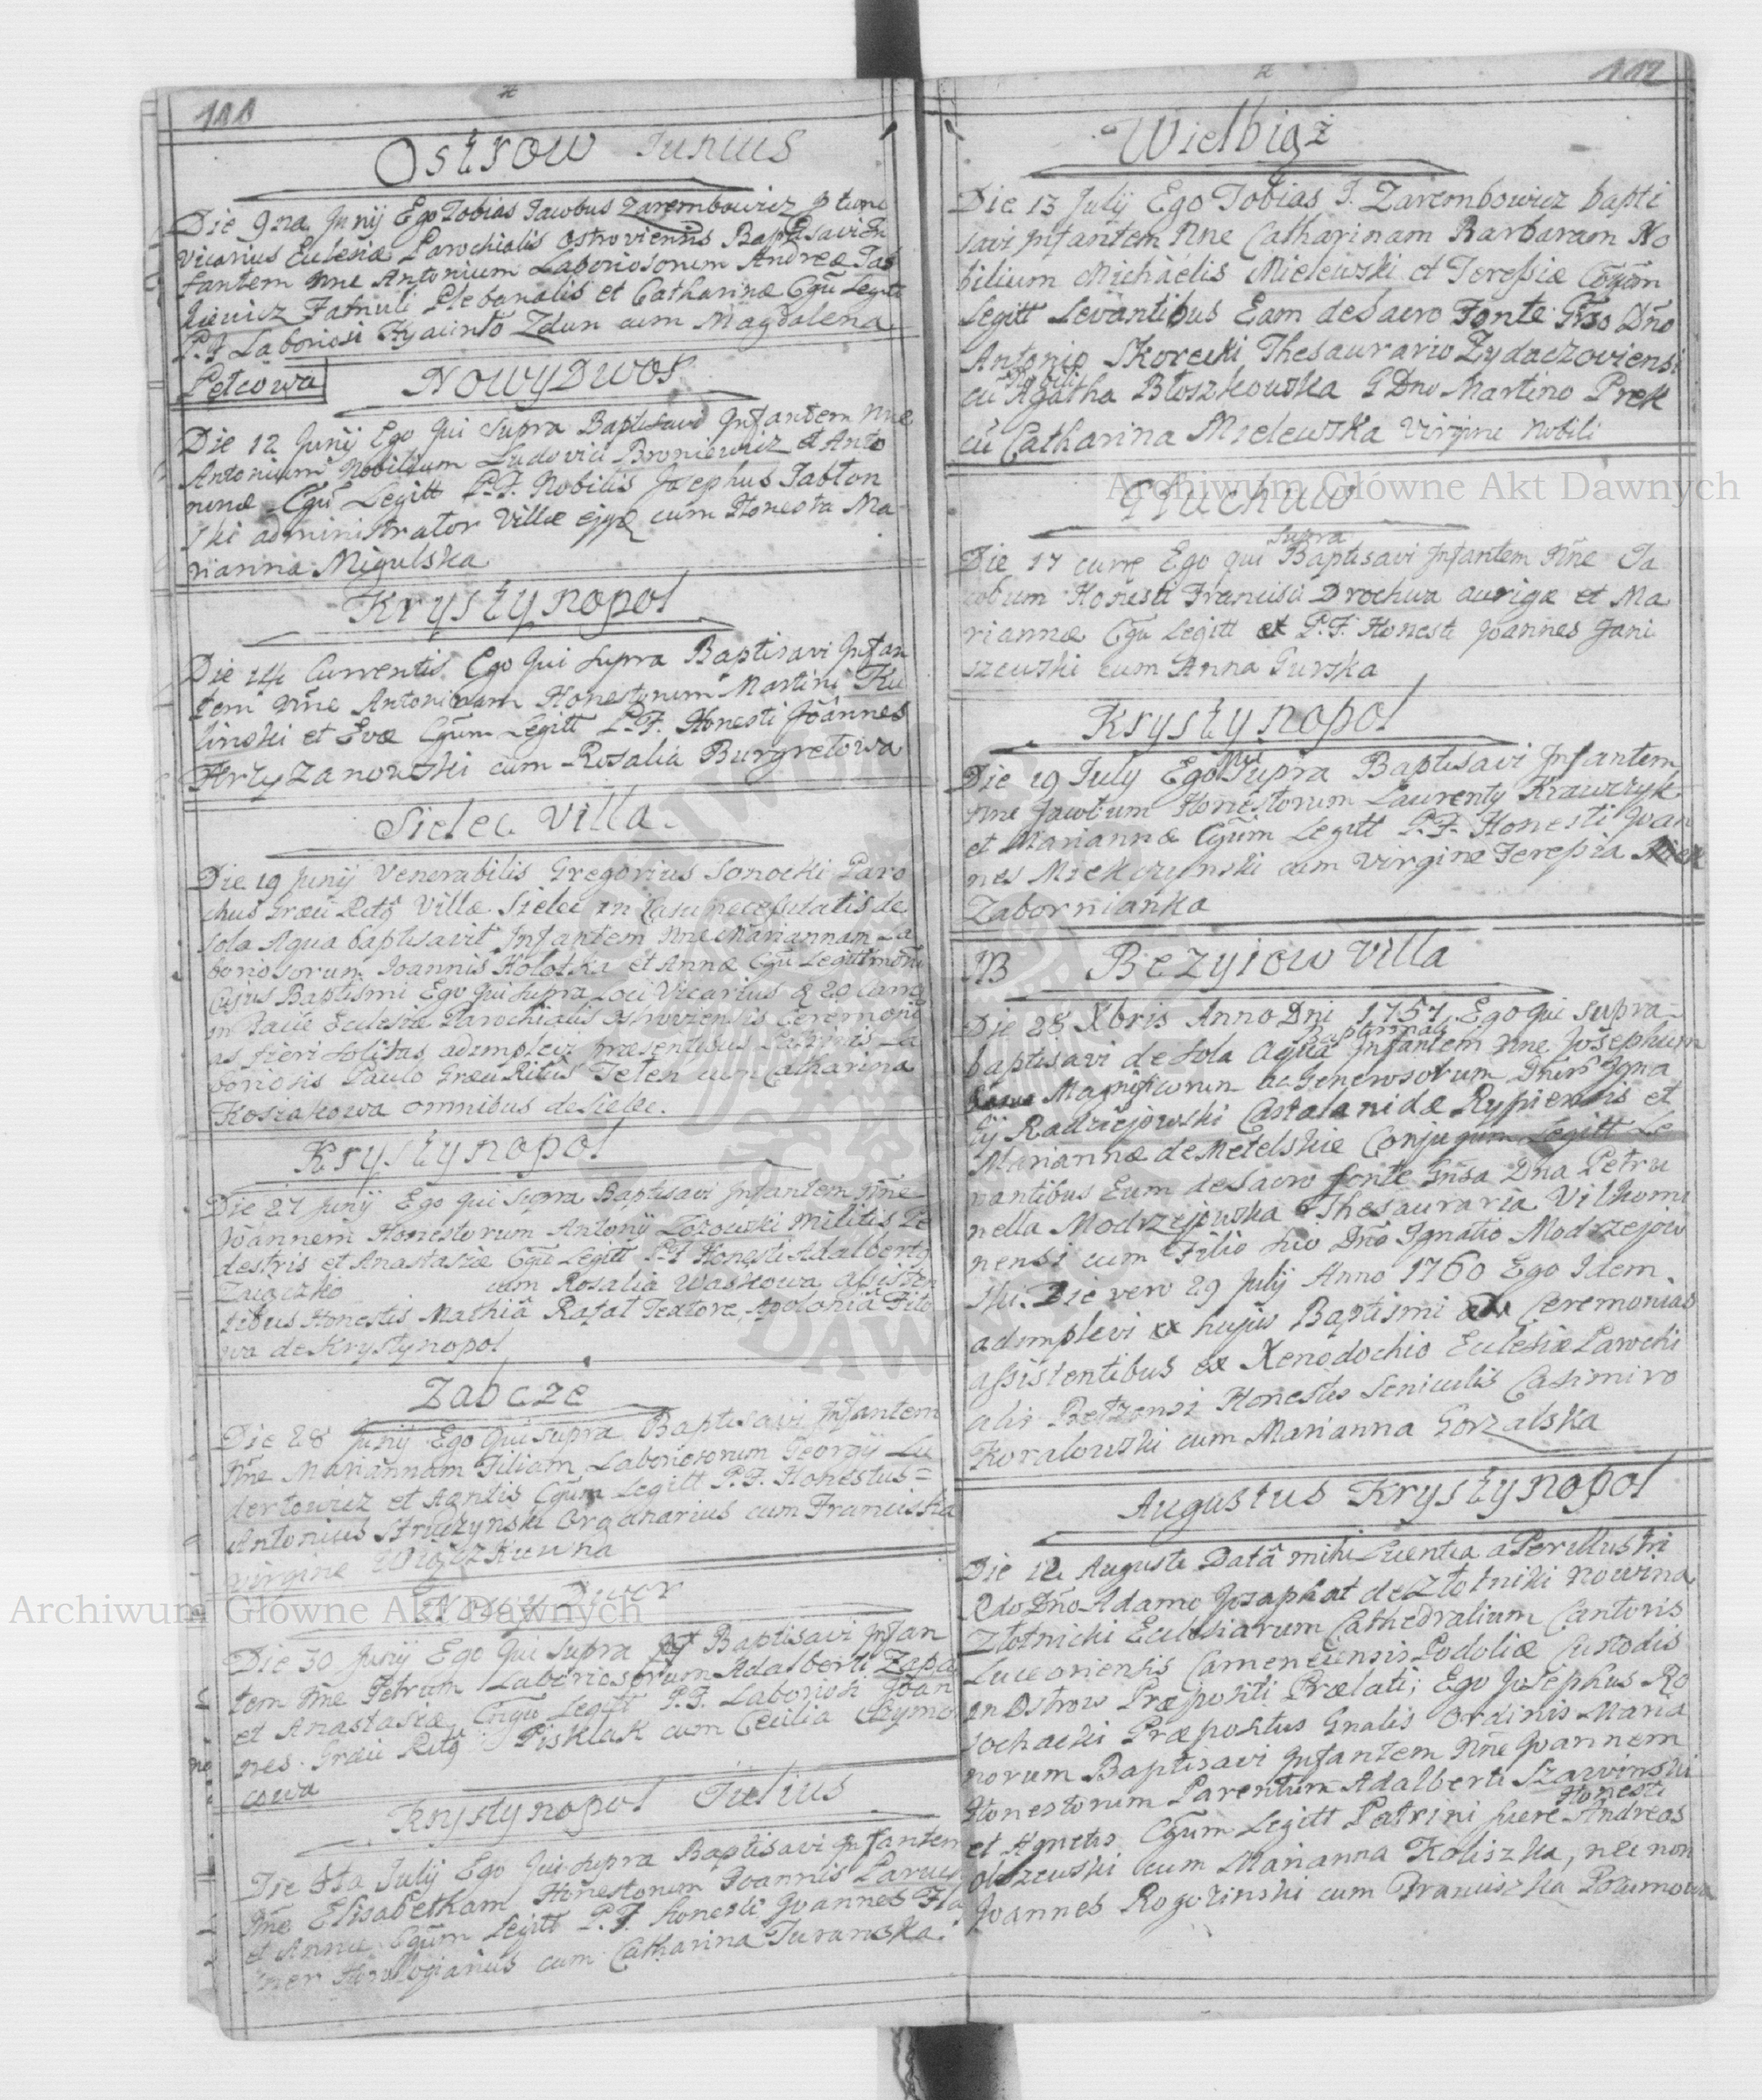 111
Ostrow Junius
Die 9na Junij Ego Tobias Jacobus Zarembowicz p tunc
Vicarius Eclesiæ Parochialis Ostroviensis Baptisavi In
fantem Nne Antonium Laboriosorum Andreæ Jas
kiewicz Famuli Plebanalis et Catharinæ Cgū Legitt
P.F Laboriosi Hyacinto Zdun cum Magdalena
Petcowa
Nowy Dwor
Die 12 Junij Ego Qui Supra Baptisavi Infantem Nne
Antonium Nobilium Ludovici Broniewicz et Anto
ninæ Cgū Legitt P.F. Nobilis Josephus Jabłon
ski administrator Villæ ejqs cum Honesta Ma
rianna Migulska
Krystynopol
Die 14 Currentis Ego Qui Supra Baptisavi Infan
tem Nne Antonium Honestorum Martini Ku
linski et Evæ Cgūm Legitt P.F. Honesti Joannes
Hrzyzanowski cum Rosalia Burgretowa
Sielec Villa
Die 19 Junij Venerabilis Gregorius Sonocki Paro
chus Græci Ritq Villæ Sielec in Casu necessitatis de
sola Aqua baptisavit Infantem Nne Mariannam La
boriosorum Joannis Holotka et Annæ Cgū Legittimorū
Cujus Baptismi Ego Qui Supra Loci Vicarius d 29
in Facie Eclesiæ Parochialis Ostroviensis Ceremoni
as fieri solitas adimplevi præsentibus Patrinis La
boriosis Paulo Græci Ritus Teteh cum Catharina
Kosiakowa omnibus de Sielec.
Krystynopol
Die 27 Junij Ego Qui Supra Baptisavi Infantem Nne
Joannem Honestorum Antonij Lozowski Militis Pe
destris et Anastasiæ Cgū Legitt P.F Honesti Adalberty
Zaiączko cum Rosalia Waskowa assisten
tibus Honestis Mathiā Rafał Textore, Apoloniā Fito
wa de Krystynopol
Zabcze
Die 28 Junij Ego Qui Supra Baptisavi Infantem
Nne Mariannam Filiam Laboriosorum Georgij Lu
dertowicz et Agnetis Cgūm Legitt P.F. Honestus
Antonius Struczynski Organarius cum Franciska
Virgine
Nowy Dwor
Die 30 Junij Ego Qui Supra Baptisavi Infan
tem Nne Petrum Laboriosorum Adalberti Zapa
et Anastasiæ Cngū Legitt P.F. Laboriosi Joan
nes Græci Ritq Pisklak cum Cecilia Szymo
no
cowa
Krystynopol Julius
Die 8ta July Ego Qui Supra Baptisavi Infantem
Nne Elisabetham Honestorum Joannis
et Annæ Cgūm Legitt P.F. Honesti Joannes Fla
Horologiarius cum Catharina Turanska.
112
Wielbiąż
Die 13 July Ego Tobias J. Zarembowicz bapti
savi Infantem Nne Catharinam Barbaram No
bilium Michäelis Mielewski et Teressiæ Cgūm
Legitt Levantibus Eam de Sacro Fonte Grso Dño
Antonio Skorecki Thesaurario Zydaczoviensi
Nobili
cū Agatha Błoszkowska G Dno Martino Prek
cū Catharina Mielewska Virgine Nobili
Głuchuw
Supra
Die 17 curr Ego Qui Baptisavi Infantem Nñe Ja
cobum Honesti Francisci Drochwa aurigæ et Ma
riannæ Cgū Legitt et P.F. Honesti Joannes Jani
szewski cum Anna Gurska
Krystynopol
Qui
Die 19 July Ego Supra Baptisavi Infantem
Nne Jacobum Honestorum Laurenty Krawczyk
et Mariannæ Cgūm Legitt P.F. Honesti Joan
nes Miekczynski cum Virgine Teressia
Zabornianka
NB Bezyiow Villa
Die 28 Xbris Anno Dni 1757 Ego qui Supra
Baptismali
baptisavi de sola Aqua Infantem Nne Josephum
Magnificorum ac Generosorum Dnorū Igna
tij Radziejowski Castalanidæ Rypiensis et
Mariannæ de Metelskie Conjugum Legitt Le
vantibus Eum de Sacro fonte Gnsa Dna Petru
nella Modrzejowska Thesauraria Vilkomi
nensi cum Filio suo Dño Ignatio Modrzejow
ski. Die vero 29 July Anno 1760 Ego Idem
adimplevi hujus Baptismi Ceremonias
assistentibus ex Xenodochio Eclesiæ Parochi
alis Betzensi Honestis Seniculis Casimiro
Koralowski cum Marianna Gorzalska
Augustus Krystynopol
Die 12 Augusti Datâ mihi Licentia a Perillustri
Rdo Dño Adamo Josaphat de Złotniki Nowina
Złotnicki Eclesiarum Cathedralium Cantoris
Luceoriensis Camenecensis Podoliæ Custodis
in Ostrow Præpositi Prælati; Ego Josephus Ro
sochacki Præpositus Gnalis Ordinis Maria
norum Baptisavi Infantem Nne Joannem
Honestorum Parentum Adalberti Szawinski
Honesti
et Agnetis Cgūm Legitt Patrini fuere Andreas
Olszewski cum Marianna Kaliszka, nec non
Joannes Rogozinski cum Franciszka Poznmowa
Archiwum Główne Akt Dawnych
Archiwum Główne Akt Dawnych